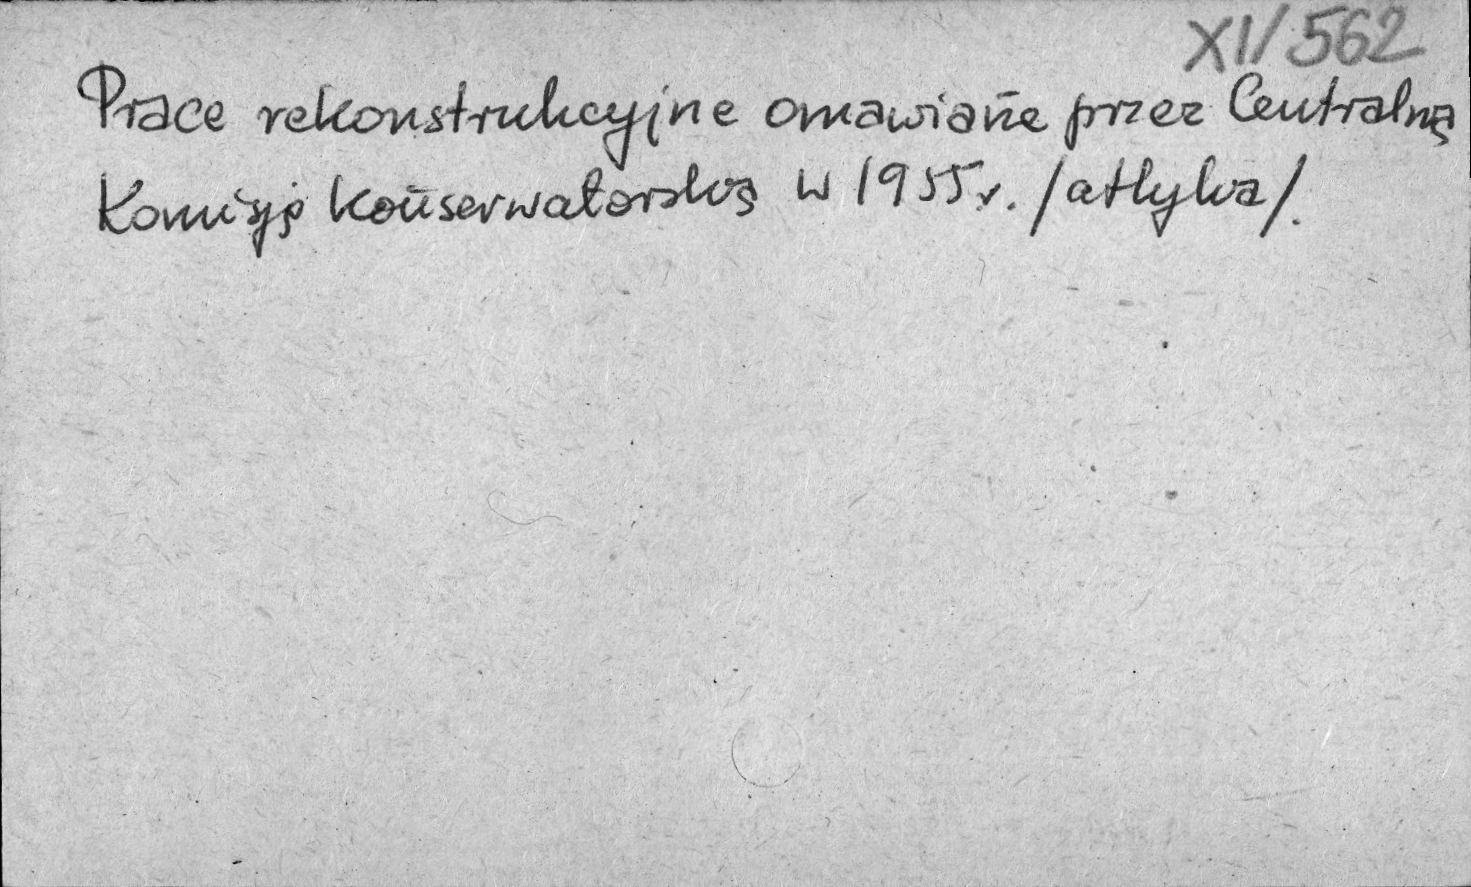 XI/562
Prace rekonstrukcyjne omawiane przez Centralną
Komisję Konserwatorską w 1955 r. /attyka/.